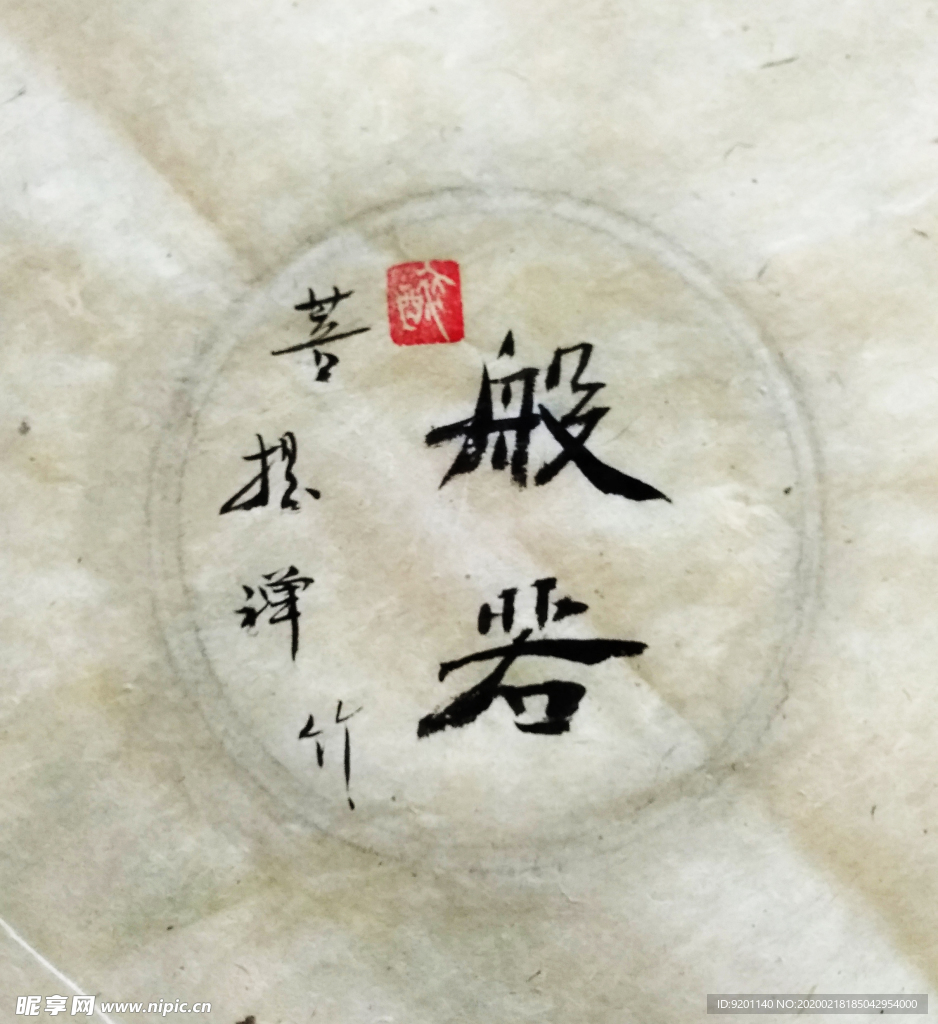 般若
菩提禅竹
醉
昵享网 www.nipic.cn
ID:9201140 NO:20200218185042954000